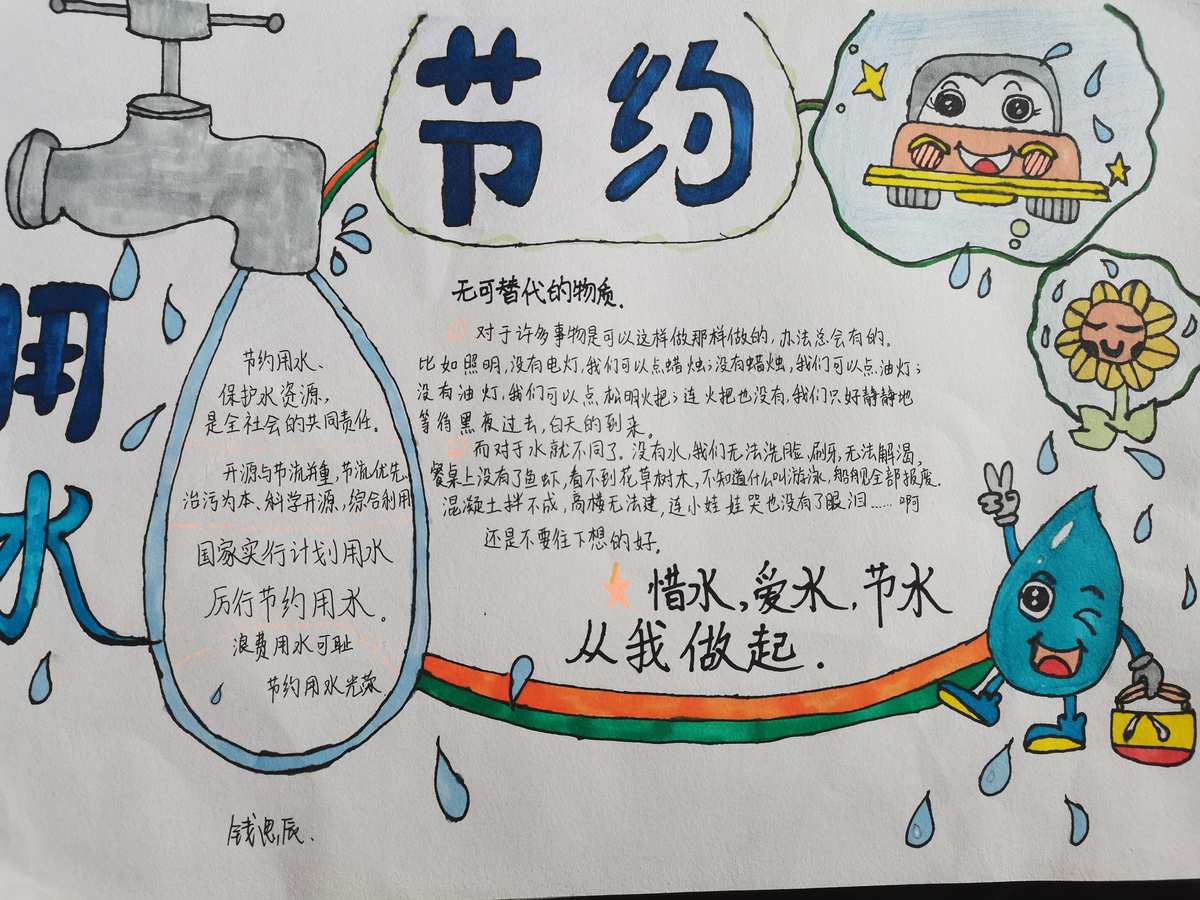 节约
用
水
节约用水、
保护水资源，
是全社会的共同责任.
开源与节流并重,节流优先、
治污为本、科学开源,综合利用
国家实行计划用水
厉行节约用水。
浪费用水可耻
节约用水光荣.
无可替代的物质.
对于许多事物是可以这样做那样做的,办法总会有的.
比如照明,没有电灯,我们可以点蜡烛;没有蜡烛,我们可以点油灯;
没有油灯,我们可以点松明火把;连火把也没有,我们只好静静地
等待黑夜过去,白天的到来。
而对于水就不同了。没有水,我们无法洗脸、刷牙,无法解渴,
餐桌上没有了鱼虾,看不到花草树木,不知道什么叫游泳,船舶全部报废.
混凝土拌不成,高楼无法建,连小娃娃哭也没有了眼泪……啊
还是不要往下想的好。
惜水,爱水,节水
从我做起.
钱思辰.